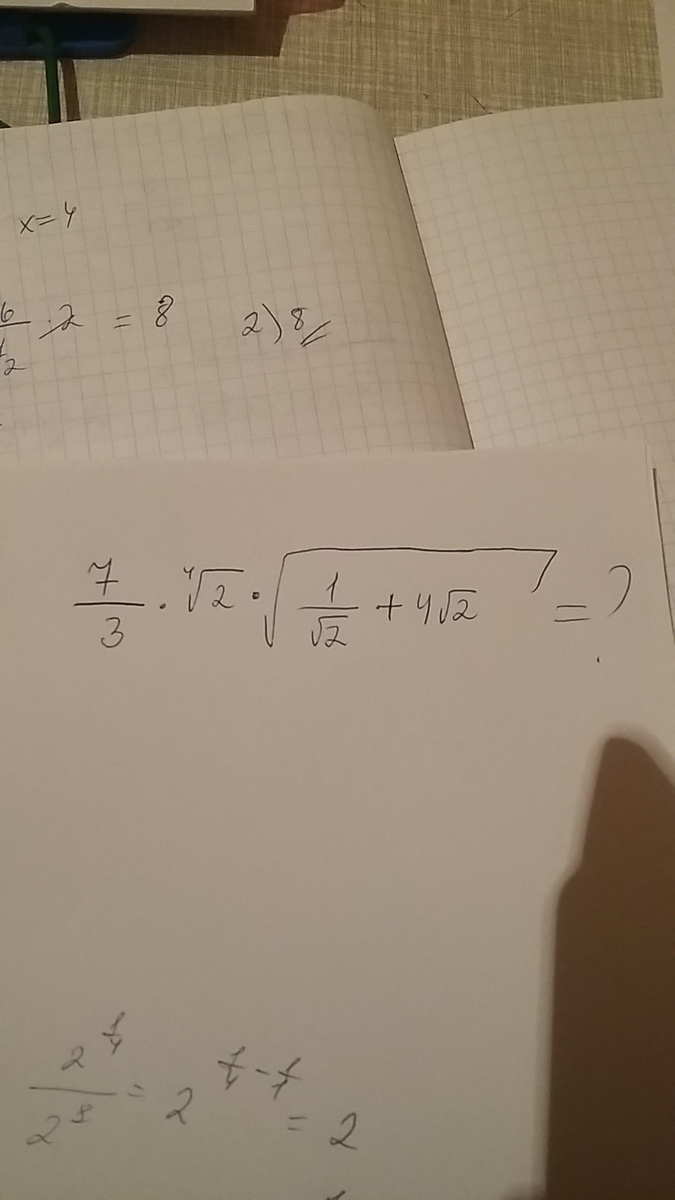 x=4
6/½ · 2 = 8 2) 8
7/3 · ⁴√2 · √(1/√2 + 4√2) = ?
2^(1/4)/2^8 = 2^(1/4 - 1/1) = 2